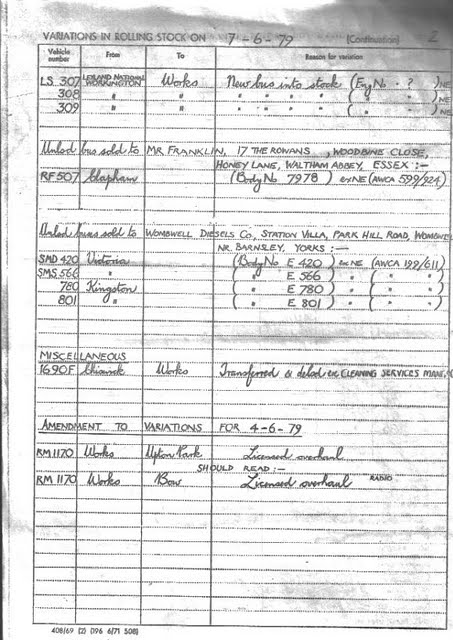 VARIATIONS IN ROLLING STOCK ON 7-6-79 (Continuation) 2
Vehicle number From To Reason for variation
LS 307 LEYLAND NATIONAL WORKINGTON Works New bus into stock (Eng No . ? ) NE
308 " " " " " " ( " ) NE
309 " " " " " " ( " ) NE
Unlsd bus sold to MR FRANKLIN, 17 THE ROWANS, WOODBINE CLOSE,
HONEY LANE, WALTHAM ABBEY, ESSEX :-
RF 507 Clapham (Body No 7978) ex NE (AWCA 599/924)
Unlsd buses sold to WOMBWELL DIESELS Co, STATION VILLA, PARK HILL ROAD, WOMBWE
NR. BARNSLEY, YORKS :-
SMD 420 Victoria (Body No E 420) ex NE (AWCA 199/611)
SMS 566 " ( " E 566) " ( " " )
780 Kingston ( " E 780) " ( " " )
801 " ( " E 801) " ( " " )
MISCELLANEOUS
1690F Chiswick Works Transferred & delsd ex CLEANING SERVICES MAN
AMENDMENT TO VARIATIONS FOR 4-6-79
RM 1170 Works Upton Park Licensed overhaul
SHOULD READ :-
RM 1170 Works Bow Licensed overhaul RADIO
408/69 (2) D196 6/71 SOB)